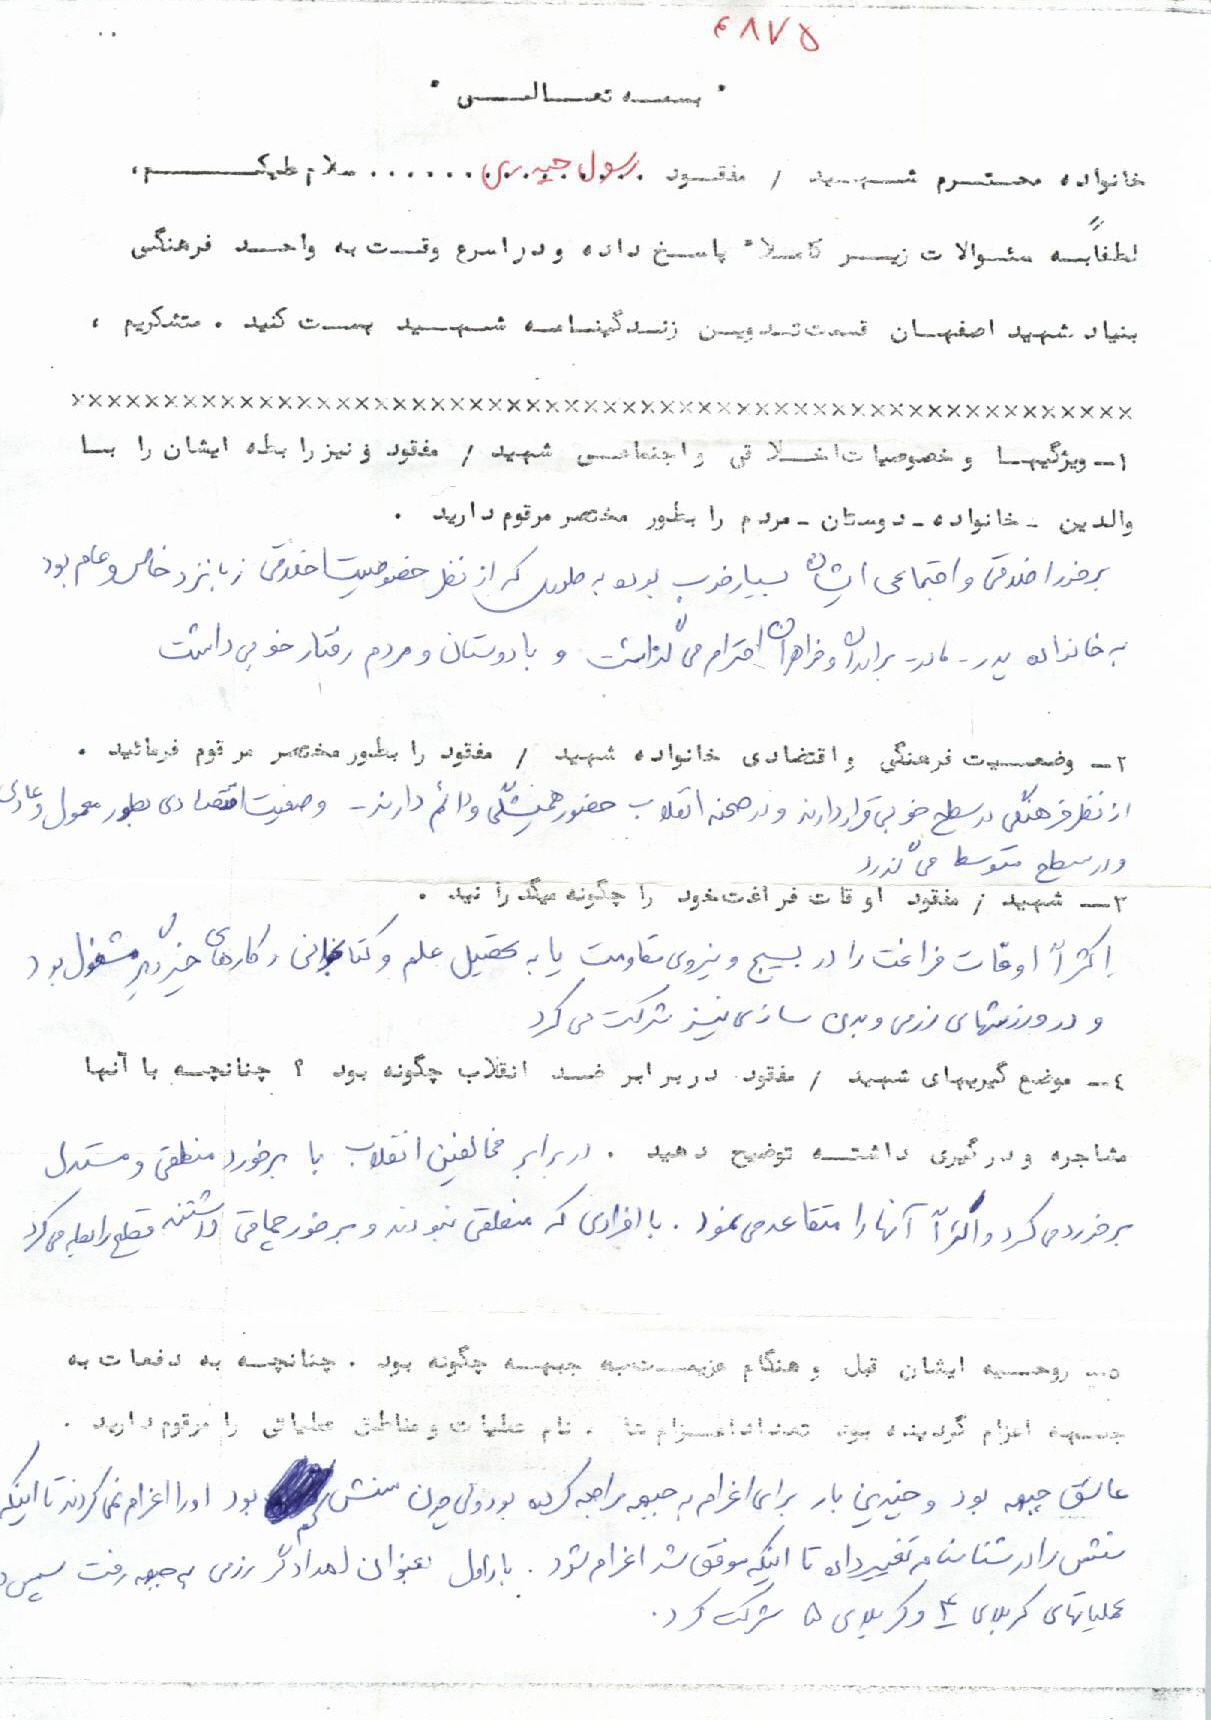 ۴۸۷۵
" بسمه تعالی "
خانواده محترم شهید / مفقود رسول حیدری ...... سلام علیکم،
لطفاً به سئوالات زیر کاملا" پاسخ داده و در اسرع وقت به واحد فرهنگی
بنیاد شهید اصفهان قسمت تدوین زندگینامه شهید پست کنید . متشکریم ،
××××××××××××××××××××××××××××××××××××××××××××××××××××××××
۱ــ ویژگیها و خصوصیات اخلاقی و اجتماعی شهید / مفقود و نیز رابطه ایشان را با
والدین ـ خانواده ـ دوستان ـ مردم را بطور مختصر مرقوم دارید .
برخورد اخلاقی و اجتماعی ایشان بسیار خوب بوده به طوری که از نظر خصوصیت اخلاقی زبانزد خاص و عام بود
به خانواده پدر ـ مادر ـ برادران و خواهران احترام می گذاشت و با دوستان و مردم رفتار خوبی داشت
۲ــ وضعیت فرهنگی و اقتضادی خانواده شهید / مفقود را بطور مختصر مرقوم فرمائید .
از نظر فرهنگی در سطح خوبی قرار دارند و در صحنه انقلاب حضور همیشگی و دائم دارند ـ وضعیت اقتصادی بطور معمول و عادی
و در سطح متوسط می گذرد
۳ــ شهید / مفقود اوقات فراغت خود را چگونه میگذرانید .
اکثراً اوقات فراغت را در بسیج و نیروی مقاومت یا به تحصیل علم و کتابخوانی و کارهای خیر دیگر مشغول بود
و در ورزشهای رزمی و بدن سازی نیز شرکت می کرد
٤ــ موضع گیریهای شهید / مفقود در برابر ضد انقلاب چگونه بود ؟ چنانچه با آنها
مشاجره و درگیری داشته توضیح دهید . در برابر مخالفین انقلاب با برخورد منطقی و مستدل
برخورد می کرد و اکثراً آنها را متقاعد می نمود . با افرادی که منطقی نبودند و برخورد حماقی داشتند قطع رابطه می کرد
۵ــ روحیه ایشان قبل و هنگام عزیمت به جبهه چگونه بود . چنانچه به دفعات به
جبهه اعزام گردیده بود تعداد اعزام ها . نام عملیات و مناطق عملیاتی را مرقوم دارید .
عاشق جبهه بود و چندین بار برای اعزام به جبهه مراجعه کرده بود ولی چون سنش کم بود او را اعزام نمی کردند تا اینکه
سنش را در شناسنامه تغییر داد تا اینکه موفق شد اعزام شود . بار اول بعنوان امدادگر رزمی به جبهه رفت سپس در
عملیاتهای کربلای ۴ و کربلای ۵ شرکت کرد .